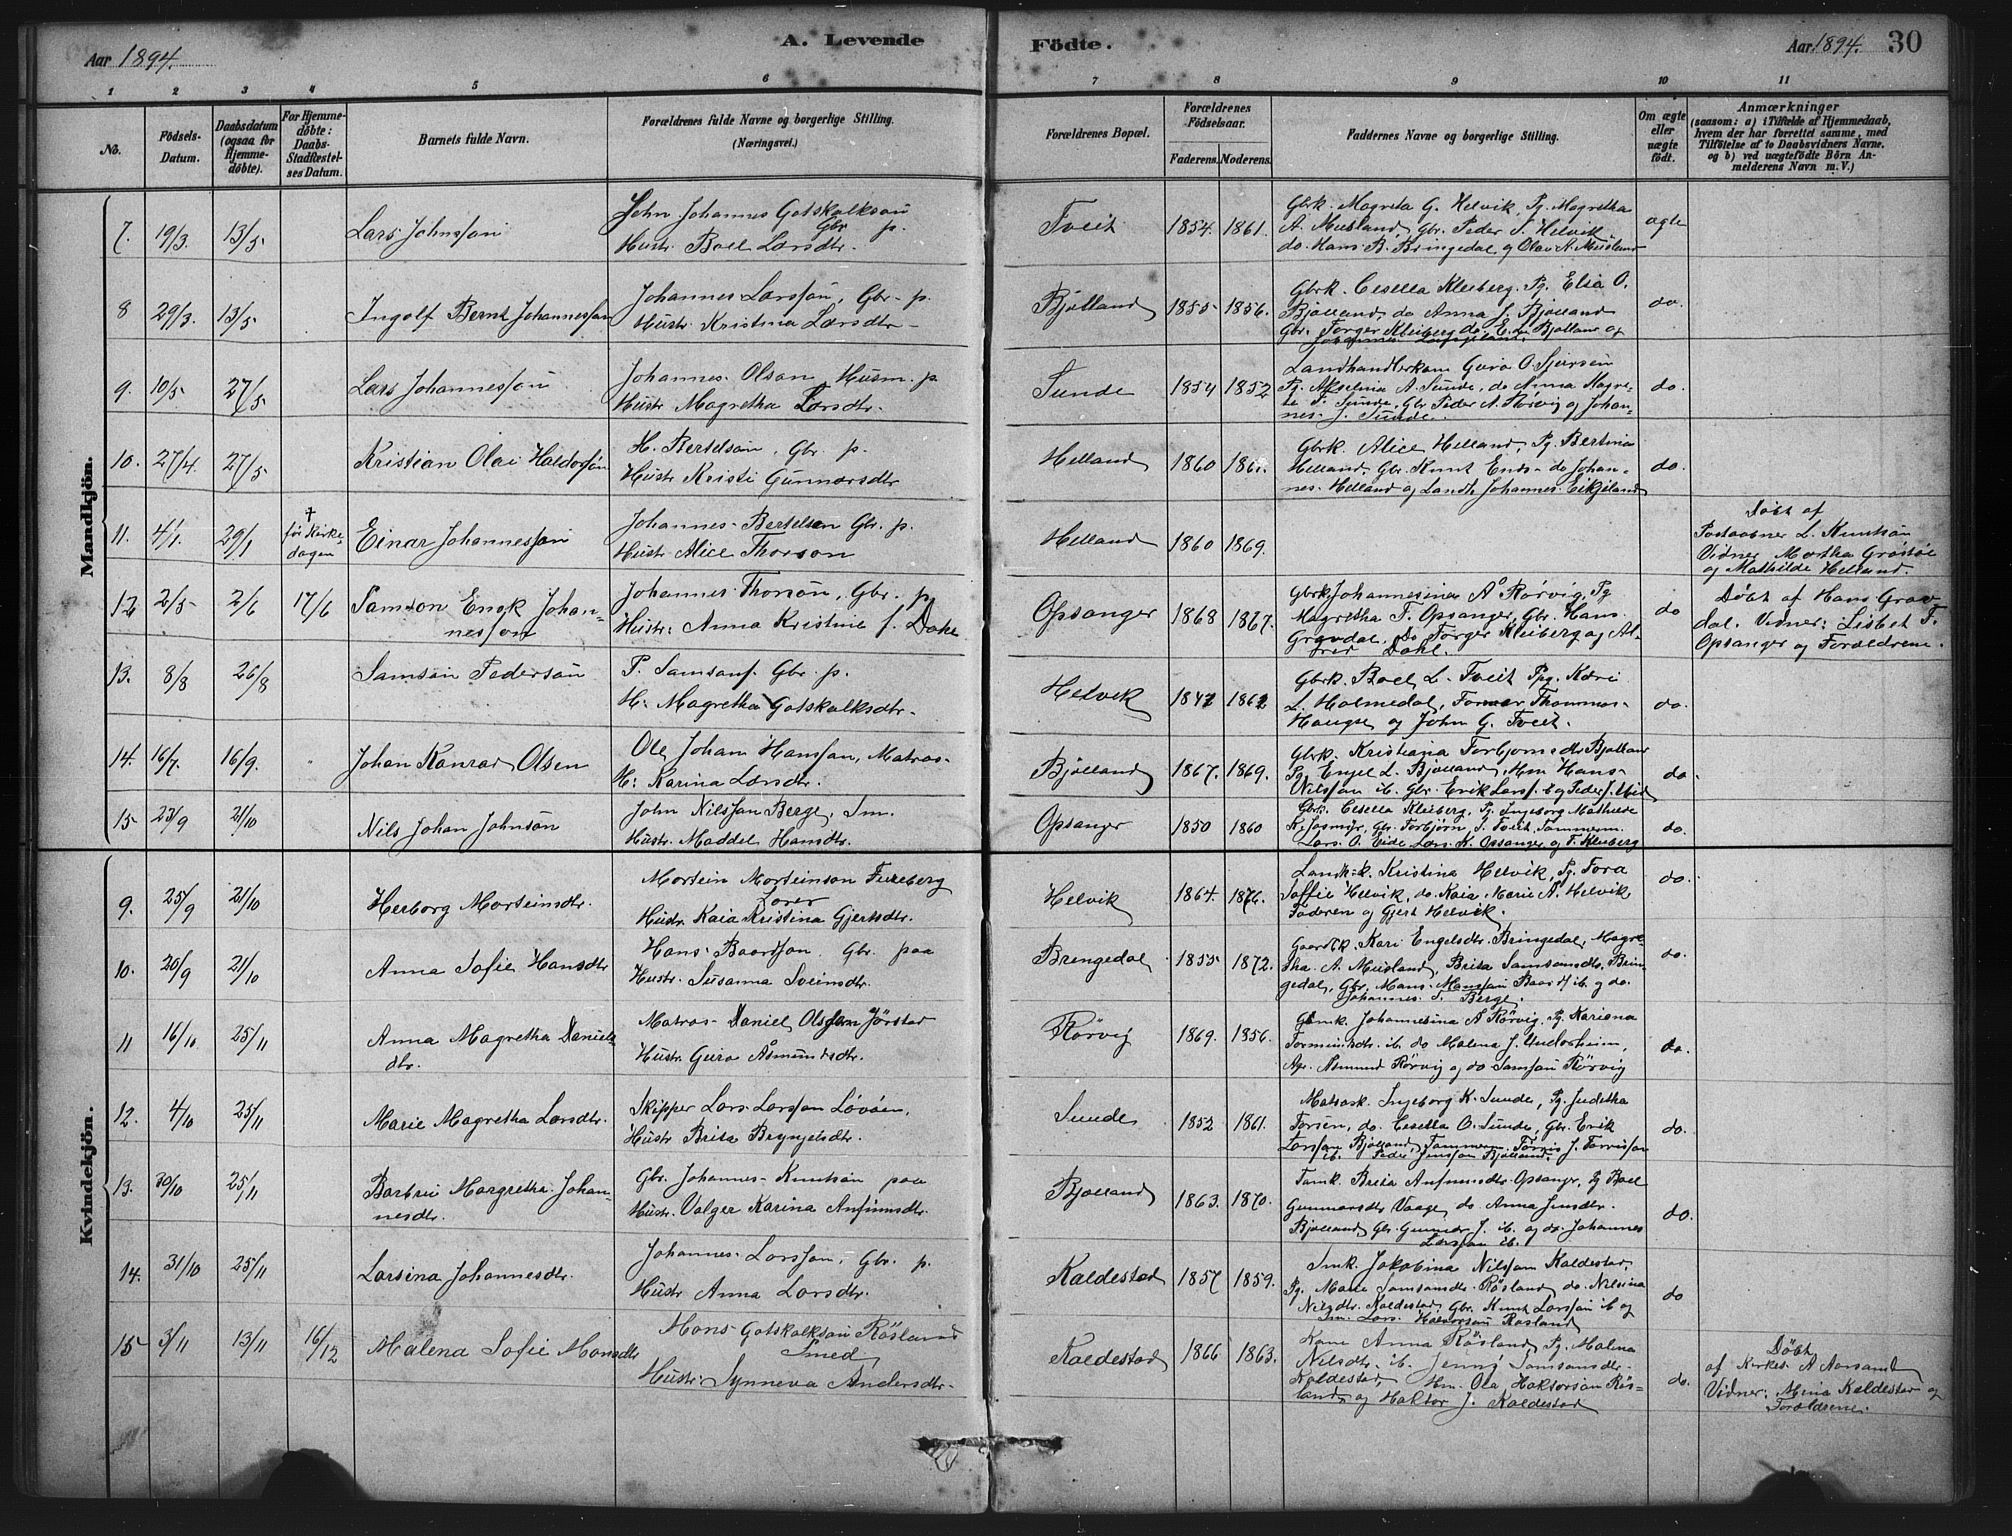 Aar 1894.
A. Levende
Födte.
Aar 1894.
30
1 2 3 4 5 6 7 8 9 10 11
No.
Födsels-Datum.
Daabsdatum (ogsaa for Hjemmedöbte).
For Hjemmedöbte: Daabs-Stadfæstelses Datum.
Barnets fulde Navn.
Forældrenes fulde Navne og borgerlige Stilling.
(Næringsvei.)
Forældrenes Bopæl.
Forældrenes Födselsaar.
Faderens. Moderens.
Faddernes Navne og borgerlige Stilling.
Om ægte eller uægte födt.
Anmærkninger
(saasom: a) i Tilfælde af Hjemmedaab,
hvem der har forrettet samme, med
Tilföielse af to Daabsvidners Navne.
og b) ved uægtefödte Börn An-
melderens Navn m.V.)
Mandkjön.
7. 19/3. 13/5 Lars Johnssön
John Johannes Gotskalksön
Gbr p.
Hustr. Boel Larsdtr.
Tveit 1854. 1861.
Gbrk. Magreta G. Helvik, Pg. Magretha
A. Musland, Gbr. Peder S. Helvik
do. Hans B. Bringedal og Olav A. Musland
ægte
8 29/3. 13/5 Ingolf Bernt Johannessön
Johannes Larssön, Gbr. p.
Hustr. Kristina Larsdtr
Bjölland 1855 1856.
Gbrk. Cesella Kleiberg, Pg. Elia O.
Bjölland, do Anna J. Bjølland
Gbr. Torger Kleiberg do. E. L. Bjølland og
do.
9. 10/5 27/5 Lars Johannessön
Johannes Olson, Husm. p.
Hustr Magretha Larsdtr.
Sunde 1854 1852
Landhandlerkone Guro O. Sjursen
Pg. Akselina A. Sunde, do Anna Magre-
te T. Sunde, Gbr Peder A. Rörvig og Johan-
nes J. Sunde.
do.
10. 27/4. 27/5 Kristian Olai Haldorsön
H. Bertelsön, Gbr p.
Hustr Kristi Gunnarsdtr
Helland 1860
Gbrk. Alice Helland, Pg. Bertina
Helland, Gbr. Knut Ends- do Johan-
nes Helland og Landh. Johannes Eikjeland
do.
11. 4/1. 29/1 † før Kirke-
dagen Einar Johannessön
Johannes Bertelsen Gbr. p.
Hustr Alice Thorson
Helland 1860 1869.
Döbt af
L. Knutsön
Vidner Martha
og Mathilde Helland.
12 2/5 2/6 17/6 Samson Johan-
nessön
Johannes Thorsön, Gbr. p
Hustr: Anna Kristine f. Dahl
Opsanger 1868 1867.
Gbrk Johannesina A Rørvig, Pg
Magretha T. Opsanger, Gbr. Hans
Gravdal, Do Torger Kleiberg og Al-
fred Dahl.
do
Döbt af Hans Grav
dal. Vidner: Lisbet T.
Opsanger og Forældrene.
13. 8/8 26/8 Samson Pedersön
P. Samsonss. Gbr. p.
H: Magretha Gotskalksdtr.
Helvik
Gbrk. Boel L. Tveit Pg. Kari
L. Holmedal, Thommas
Hauge og John G. Tveit.
do.
14. 16/7. 16/9. Johan Konrad Olsen
Ole Johan Hanssön, Matros
H: Karina Larsdtr.
Bjölland 1867. 1869.
Gbrk. Kristiana Torbjornsdtr Bjølland
Pg. Engel L. Bjølland, Hm Hans
Nilssön ib. Gbr. Erik Larss.
do
15 23/9 21/10 Nils Johan Johnsön
John Nilssön Berge, Sm.
Hustr. Maddel Hansdtr.
Opsanger 1850 1860
Gbrk. Cesella Kleiberg, Pg. Ingeborg Mathilde
Gbr. Torbjörn S. Tveit,
Lars O. Eide Lars K. Opsanger og T. Kleiberg
do.
Kvindekjön.
9. 25/9 21/10 Herborg Morteinsdtr.
Mortein Morteinson
Hustr. Kaia Kristina Gjertsdtr.
Helvik 1864.
Kristina Helvik, Pg. Tora
Soffie Helvik, do. Kaia Marie A. Helvik
Faderen og Gjert Helvik.
do.
10. 20/9 21/10 Anna Sofie Hansdtr
Hans Baardsön Gbr. paa
Hustr. Susanna Sveinsdtr.
Bringedal 1855 1872.
Gaardbk. Kari Engelsdtr. Bringedal, Magre-
tha A. Musland, Brita Samsonsdtr. Brin-
gedal, Gbr. Mons Monssön Baard H ib. og do.
Johannes T. Berge.
do.
11 16/10 25/11 Anna Magretha Daniels-
dtr.
Matros Daniel Olsson Jørstad
Hustr. Guro Asmundsdtr.
Rörvig 1869. 1856.
Gbrk. Johannesina A Rørvig, Pg. Kariana
ib. do Malena J. Underheim,
Asmund Rörvig og do Samson Rörvig
do.
12. 4/10 25/11 Marie Magretha Larsdtr.
Skipper Lars Larsson Løvöen,
Hustr Brita Brynjelsdtr.
Sunde 1852 1861.
Matrosk. Ingeborg K. Sunde, Pg. Juditha
do. Cesella O. Sunde, Gbr. Erik
Larssön Bjølland,
ib. Peder Jenssön Bjølland.
do.
13. 30/10 25/11 Barbru Margretha Johan-
nesdtr.
Gbr. Johannes Knutsön paa
Hustr. Valger Karina Anfinnsdtr.
Bjølland 1863. 1870.
Brita Anfinnsdtr Opsanger, Pg Boel
Gunnarsdtr Vaage, do Anna Jensdtr.
Bjølland Gbr. Gunnar J. ib. og do. Johannes
Larsson ib.
do.
14. 31/10 25/11 Larsina Johannesdtr.
Johannes Larssön, Gbr. p.
Hustr Anna Larsdtr.
Kaldestad 1857 1859.
Smk. Jakobina Nilsson Kaldestad,
Pg. Marie Samsonsdtr. Røsland, do. Nilsina
Nilsdtr. Kaldestad, Gbr. Knut Larssön ib og
Sm. Lars Halvorsøn Røsland
do
15 3/11 13/11 16/12 Malena Sofie Monsdtr
Mons Gotskalksön Røsland
Smed
Hustr. Synneva Andersdtr.
Kaldestad 1866 1863.
Kone Anna Røsland, Pg. Malena
Nilsdtr. ib. Jenny Samsonsdtr.
Kaldestad, Hm. Ola Haktorsön Røs-
land og Haktor J. Kaldestad
do.
Döbt
af Kirkes. A Aarsand
Vidner: Mina Kaldestad og
Forældrene.